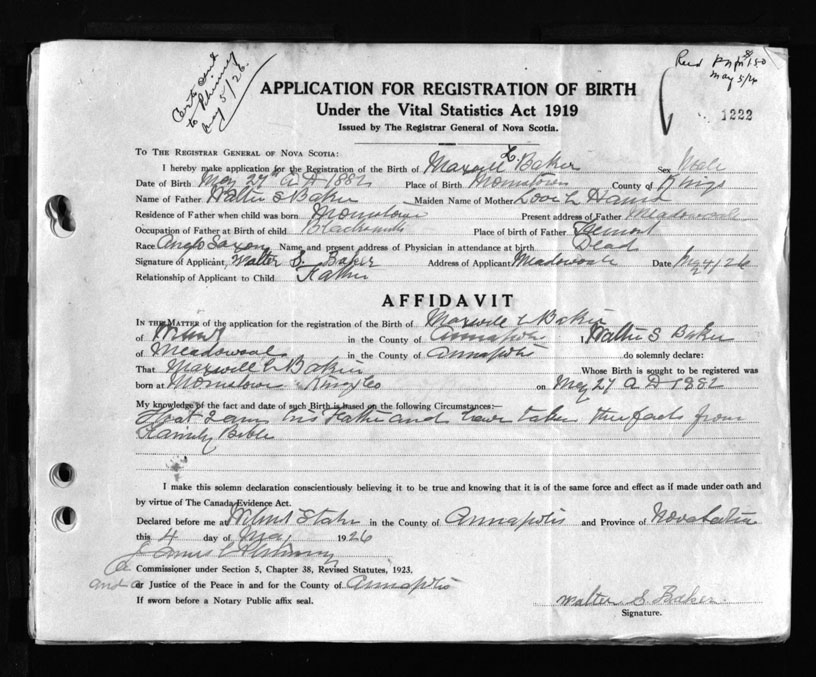 Certs sent
to Phinney
May 5/26
May 5/26
1222
APPLICATION FOR REGISTRATION OF BIRTH
Under the Vital Statistics Act 1919
Issued by The Registrar General of Nova Scotia.
TO THE REGISTRAR GENERAL OF NOVA SCOTIA:
I hereby make application for the Registration of the Birth of Maxwell L. Baker Sex Male
Date of Birth May 27th A D 1882 Place of Birth Morristown County of Kings
Name of Father Walter S Baker Maiden Name of Mother
Residence of Father when child was born Morristown Present address of Father Meadowvale
Occupation of Father at Birth of child Blacksmith Place of birth of Father
Race Anglo Saxon Name and present address of Physician in attendance at birth Dead
Signature of Applicant, Walter S. Baker Address of Applicant Meadowvale Date May 4/26
Relationship of Applicant to Child Father
AFFIDAVIT
IN THE MATTER of the application for the registration of the Birth of Maxwell L Baker
of Wilmot in the County of Annapolis I, Walter S Baker
of Meadowvale in the County of Annapolis do solemnly declare:
That Maxwell L Baker Whose Birth is sought to be registered was
born at Morristown Kings Co on May 27 A D 1882
My knowledge of the fact and date of such Birth is based on the following Circumstances:—
That I am his Father and have taken the facts from
Family Bible
I make this solemn declaration conscientiously believing it to be true and knowing that it is of the same force and effect as if made under oath and
by virtue of The Canada Evidence Act.
Declared before me at Wilmot in the County of Annapolis and Province of Nova Scotia
this 4 day of May 1926
A Commissioner under Section 5, Chapter 38, Revised Statutes, 1923.
and a or Justice of the Peace in and for the County of Annapolis
If sworn before a Notary Public affix seal.
Walter S. Baker
Signature.